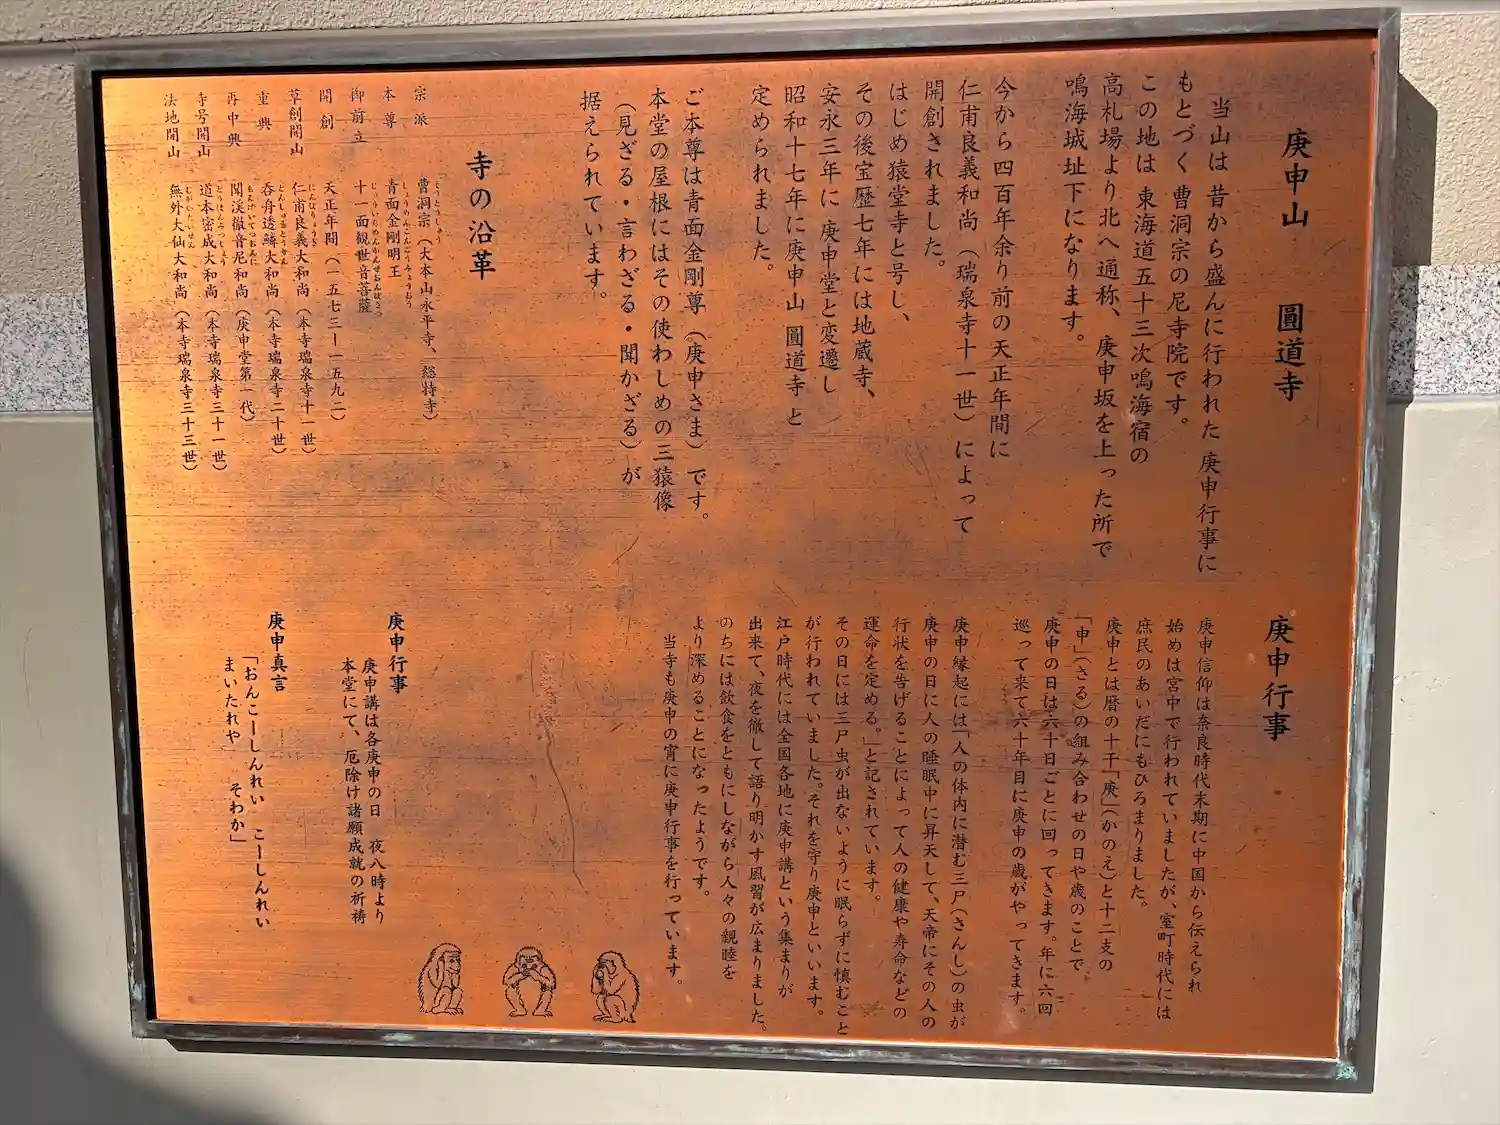 庚申山 圓道寺
当山は 昔から盛んに行われた 庚申行事に
もとづく 曹洞宗の尼寺院です。
この地は 東海道五十三次鳴海宿の
高札場より北へ通称、庚申坂を上った所で
鳴海城址下になります。
今から四百年余り前の天正年間に
仁甫良義和尚(瑞泉寺十一世)によって
開創されました。
はじめ猿堂寺と号し、
その後宝歴七年には地蔵寺、
安永三年に 庚申堂と変遷し
昭和十七年に庚申山 圓道寺 と
定められました。
ご本尊は青面金剛尊(庚申さま)です。
本堂の屋根にはその使わしめの三猿像
(見ざる・言わざる・聞かざる)が
据えられています。
寺の沿革
宗派 曹洞宗(大本山永平寺、總持寺)
本尊 青面金剛明王
御前立 十一面観世音菩薩
開創 天正年間(一五七三ー一五九二)
草創開山 仁甫良義大和尚(本寺瑞泉寺十一世)
重興 呑舟透鱗大和尚(本寺瑞泉寺二十世)
再中興 聞渓徹音尼和尚(庚申堂第 代)
寺号開山 道本密成大和尚(本寺瑞泉寺三十一世)
法地開山 無外大仙大和尚(本寺瑞泉寺三十三世)
庚申行事
庚申信仰は奈良時代末期に中国から伝えられ
始めは宮中で行われていましたが、室町時代には
庶民のあいだにもひろまりました。
庚申とは暦の十干「庚」(かのえ)と十二支の
「申」(さる)の組み合わせの日や歳のことで
庚申の日は六十日ごとに回ってきます。年に六回
巡って来て六十年目に庚申の歳がやってきます。
庚申縁起には「人の体内に潜む三尸(さんし)の虫が
庚申の日に人の睡眠中に昇天して、天帝にその人の
行状を告げることによって人の健康や寿命などの
運命を定める。」と記されています。
その日には三尸虫が出ないように眠らずに慎むこと
が行われていました。それを守り庚申といいます。
江戸時代には全国各地に庚申講という集まりが
出来て、夜を徹して語り明かす風習が広まりました。
のちには飲食をともにしながら人々の親睦を
より深めることになったようです。
当寺も庚申の宵に庚申行事を行っています。
庚申行事
庚申講は各庚申の日 夜八時より
本堂にて、厄除け諸願成就の祈祷
庚申真言
「おんこーしんれい こーしんれい
まいたれや そわか」